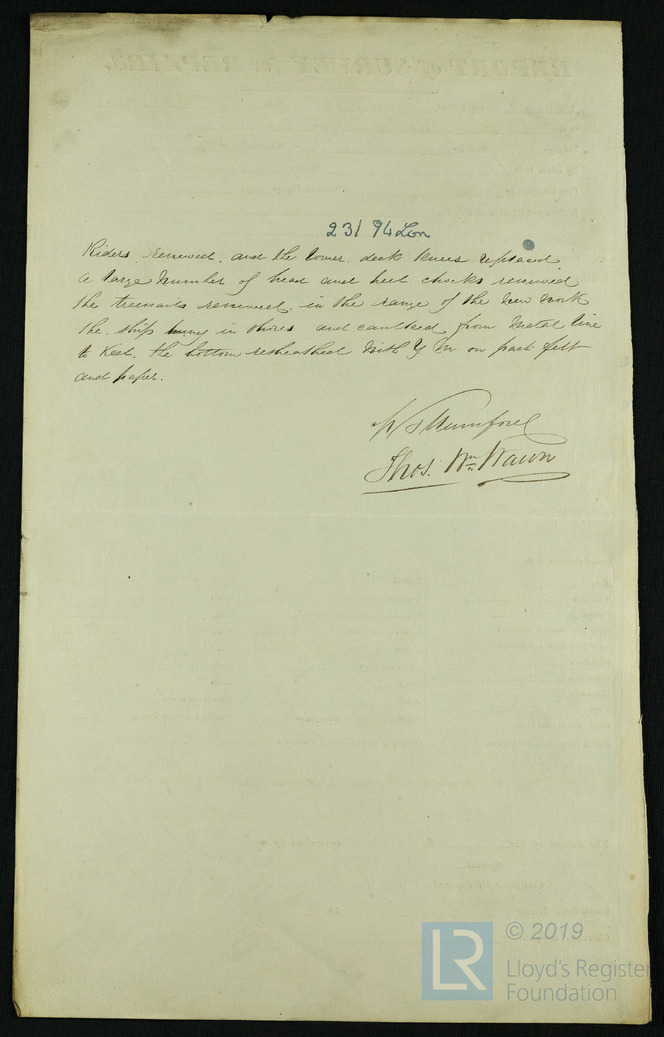 23194 Lon
Riders renewed, and the lower deck knees replaced
a large number of head and heel chocks renewed
the treenails renewed in the range of the new work
the ship hung in shores and caulked from metal line
to keel. the bottom resheathed with Y M on part felt
and paper.
Thos. Wm. Wawn
© 2019
LR
Lloyd's Register
Foundation